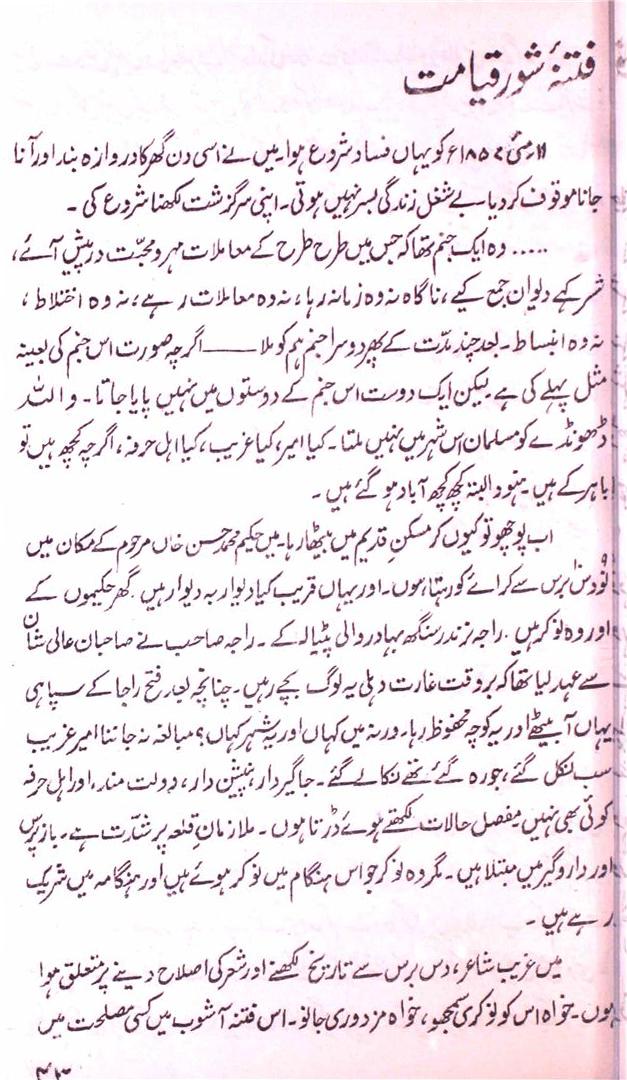 فتنۂ شورِ قیامت
۱۱ مئی ۱۸۵۷ء کو یہاں فساد شروع ہوا۔ میں نے اسی دن گھر کا دروازہ بند اور آنا
جانا موقوف کر دیا۔ بے شغل زندگی بسر نہیں ہوتی۔ اپنی سرگزشت لکھنا شروع کی۔
..... وہ ایک جنم تھا کہ جس میں طرح طرح کے معاملات مہر و محبّت درپیش آئے،
شعر کہے دیوان جمع کیے، ناگاہ نہ وہ زمانہ رہا، نہ وہ معاملات رہے، نہ وہ اختلاط،
نہ وہ انبساط۔ بعد چند مدّت کے پھر دوسرا جنم ہم کو ملا —— اگرچہ صورت اس جنم کی بعینہ
مثل پہلے کی ہے لیکن ایک دوست اس جنم کے دوستوں میں نہیں پایا جاتا۔ واللہ
ڈھونڈے کو مسلمان اس شہر میں نہیں ملتا۔ کیا امیر، کیا غریب، کیا اہل حرفہ، اگرچہ کچھ ہیں تو
باہر کے ہیں۔ ہنود البتہ کچھ کچھ آباد ہو گئے ہیں۔
اب پوچھو تو کیوں کر مسکنِ قدیم میں بیٹھا رہا۔ میں حکیم محمد حسن خاں مرحوم کے مکان میں
نو دس برس سے کرائے کو رہتا ہوں۔ اور یہاں قریب کیا دیوار بہ دیوار ہیں گھر حکیموں کے
اور وہ نوکر ہیں راجہ نرندر سنگھ بہادر والی پٹیالہ کے۔ راجہ صاحب نے صاحبان عالی شان
سے عہد لیا تھا کہ بروقت غارت دہلی یہ لوگ بچے رہیں۔ چنانچہ بعد فتح راجا کے سپاہی
یہاں آ بیٹھے اور یہ کوچہ محفوظ رہا۔ ورنہ میں کہاں اور یہ شہر کہاں؟ مبالغہ نہ جاننا امیر غریب
سب نکل گئے، جو رہ گئے تھے نکالے گئے۔ جاگیردار، پنشن دار، دولت مند، اور اہل حرفہ
کوئی بھی نہیں مفصل حالات لکھتے ہوئے ڈرتا ہوں۔ ملازمانِ قلعہ پر شدّت ہے۔ بازپرس
اور دار و گیر میں مبتلا ہیں۔ مگر وہ نوکر جو اس ہنگام میں نوکر ہوئے ہیں اور ہنگامہ میں شریک
رہے ہیں۔
میں غریب شاعر، دس برس سے تاریخ لکھنے اور شعر کی اصلاح دینے پر متعلق ہوا
ہوں۔ خواہ اس کو نوکری سمجھو، خواہ مزدوری جانو۔ اس فتنہ آشوب میں کسی مصلحت میں